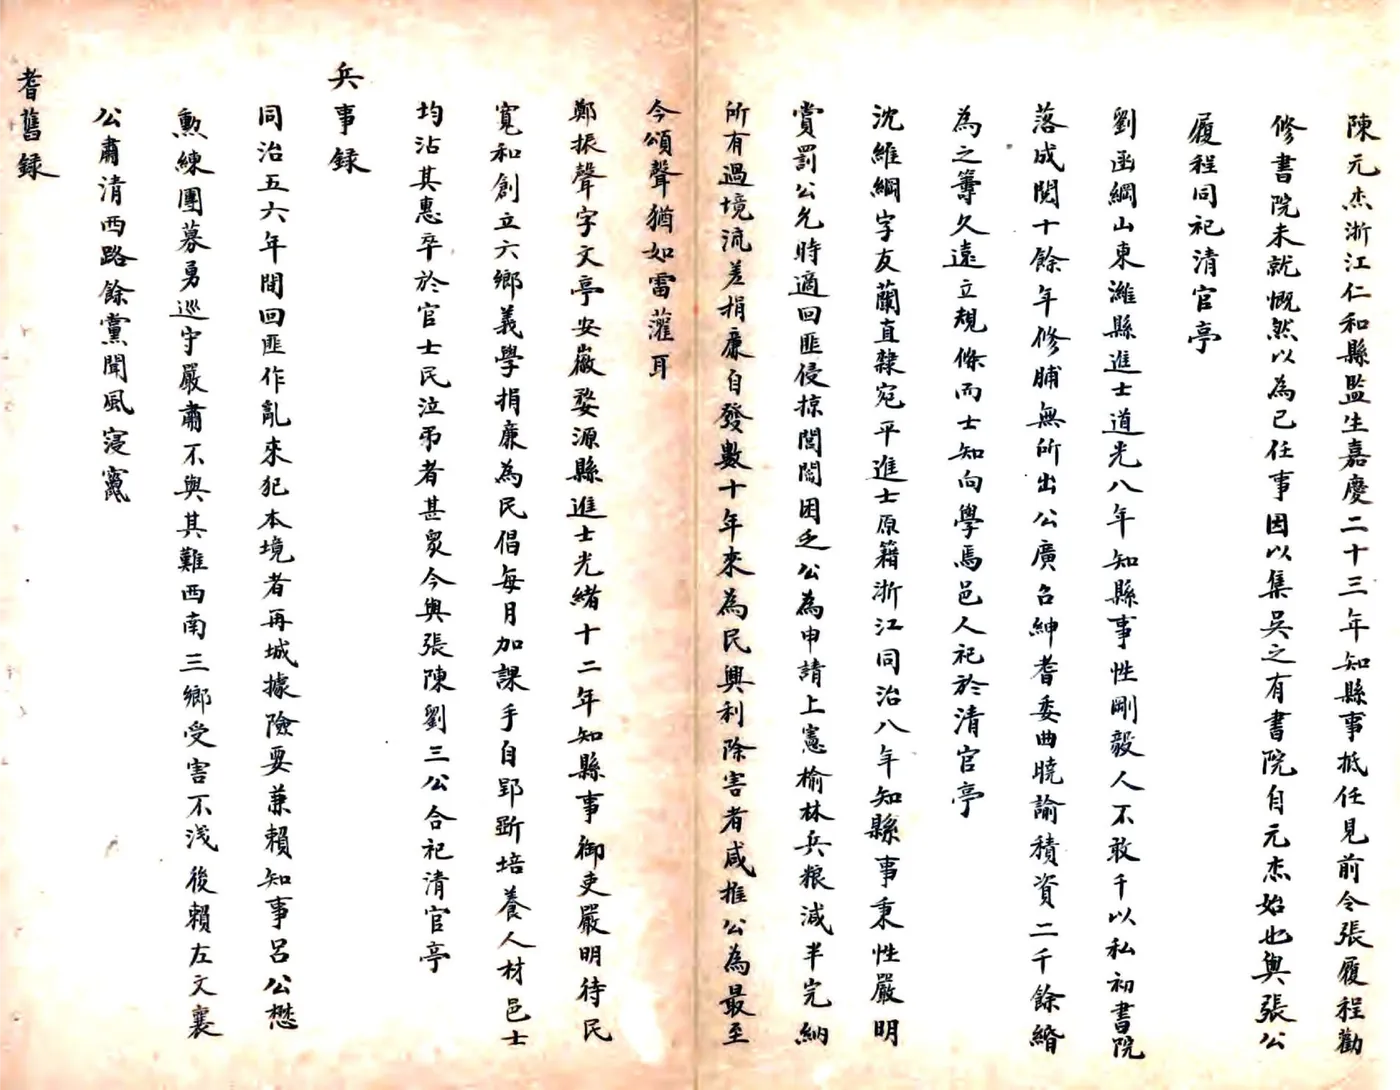 陳元杰浙江仁和縣監生嘉慶二十三年知縣事抵任見前令張履程勸
修書院未就慨然以為己任事因以集吳之有書院自元杰始也與張公
履程同祀清官亭
劉函綱山東濰縣進士道光八年知縣事性剛毅人不敢干以私初書院
落成閱十餘年修脯無所出公廣召紳耆委曲曉諭積資二千餘緡
為之籌久遠立規條而士知向學焉邑人祀於清官亭
沈維綱字友蘭直隸宛平進士原籍浙江同治八年知縣事秉性嚴明
賞罰公允時適回匪侵掠閭閻困乏公為申請上憲榆林兵粮減半完納
所有過境流差捐廉自發數十年來為民興利除害者咸推公為最至
今頌聲猶如雷灌耳
鄭振聲字文亭安徽婺源縣進士光緒十二年知縣事御吏嚴明待民
寬和創立六鄉義學捐廉為民倡每月加課手自郢斲培養人材邑士
均沾其惠卒於官士民泣弔者甚眾今與張陳劉三公合祀清官亭
兵事録
同治五六年間回匪作亂來犯本境者再城據險要兼賴知事呂公懋
勲練團募勇巡守嚴肅不與其難西南三鄉受害不浅後賴左文襄
公肅清西路餘黨聞風寖竄
耆舊録